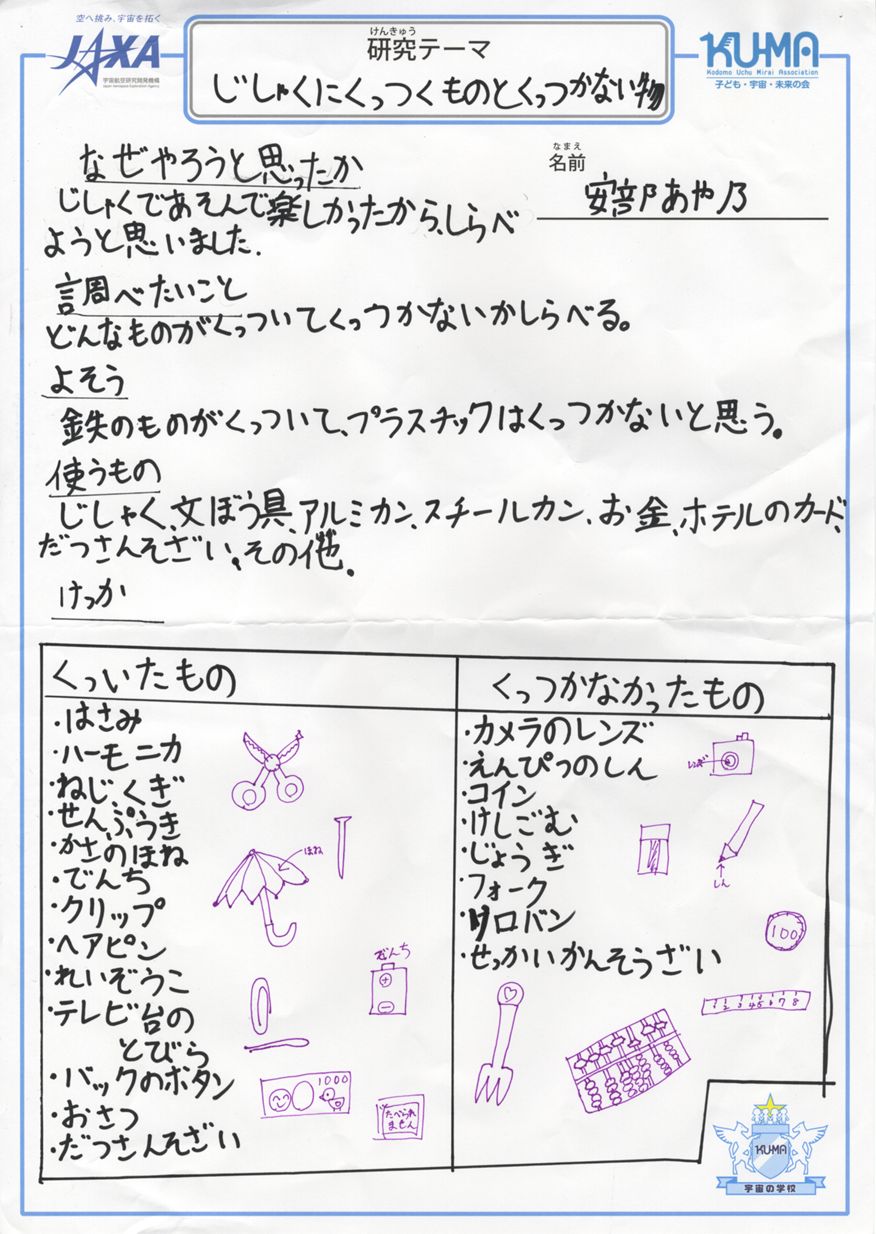 空へ挑み、宇宙を拓く
JAXA
宇宙航空研究開発機構
Japan Aerospace Exploration Agency
けんきゅう
研究テーマ
じしゃくにくっつくものとくっつかない物
KU-MA
Kodomo Uchu Mirai Association
子ども・宇宙・未来の会
なまえ
名前
安部あや乃
なぜやろうと思ったか
じしゃくであそんで楽しかったから、しらべ
ようと思いました.
調べたいこと
どんなものがくっついてくっつかないかしらべる。
よそう
鉄のものがくっついて、プラスチックはくっつかないと思う。
使うもの
じしゃく、文ぼう具、アルミカン、スチールカン、お金、ホテルのカード、
だっさんそざい、その他.
けっか
くっいたもの
・はさみ
・ハーモニカ
・ねじ、くぎ
・せんぷうき
・かさのほね
・でんち
・クリップ
・ヘアピン
・れいぞうこ
・テレビ台の
とびら
・バックのボタン
・おさつ
・だっさんそざい
ほね
でんち
+
−
1000
たべられ
ません
くっつかなかったもの
・カメラのレンズ
・えんぴつのしん
・コイン
・けしごむ
・じょうぎ
・フォーク
・ソロバン
・せっかいかんそうざい
レンズ
しん
100
1 2 3 4 5 6 7 8
KU-MA
宇宙の学校